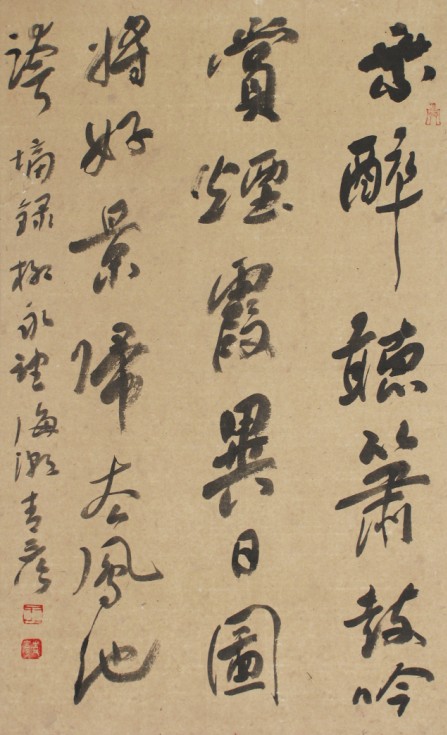 乘醉聽簫鼓吟
賞煙霞異日圖
將好景歸去鳳池
誇 摘録柳永望海潮